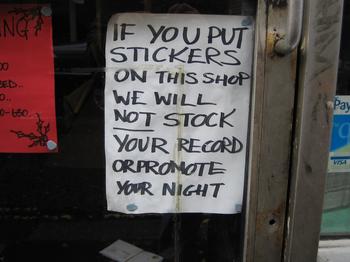 IF YOU PUT
STICKERS
ON THIS SHOP
WE WILL
NOT STOCK
YOUR RECORD
OR PROMOTE
YOUR NIGHT
NG
Pay
VISA